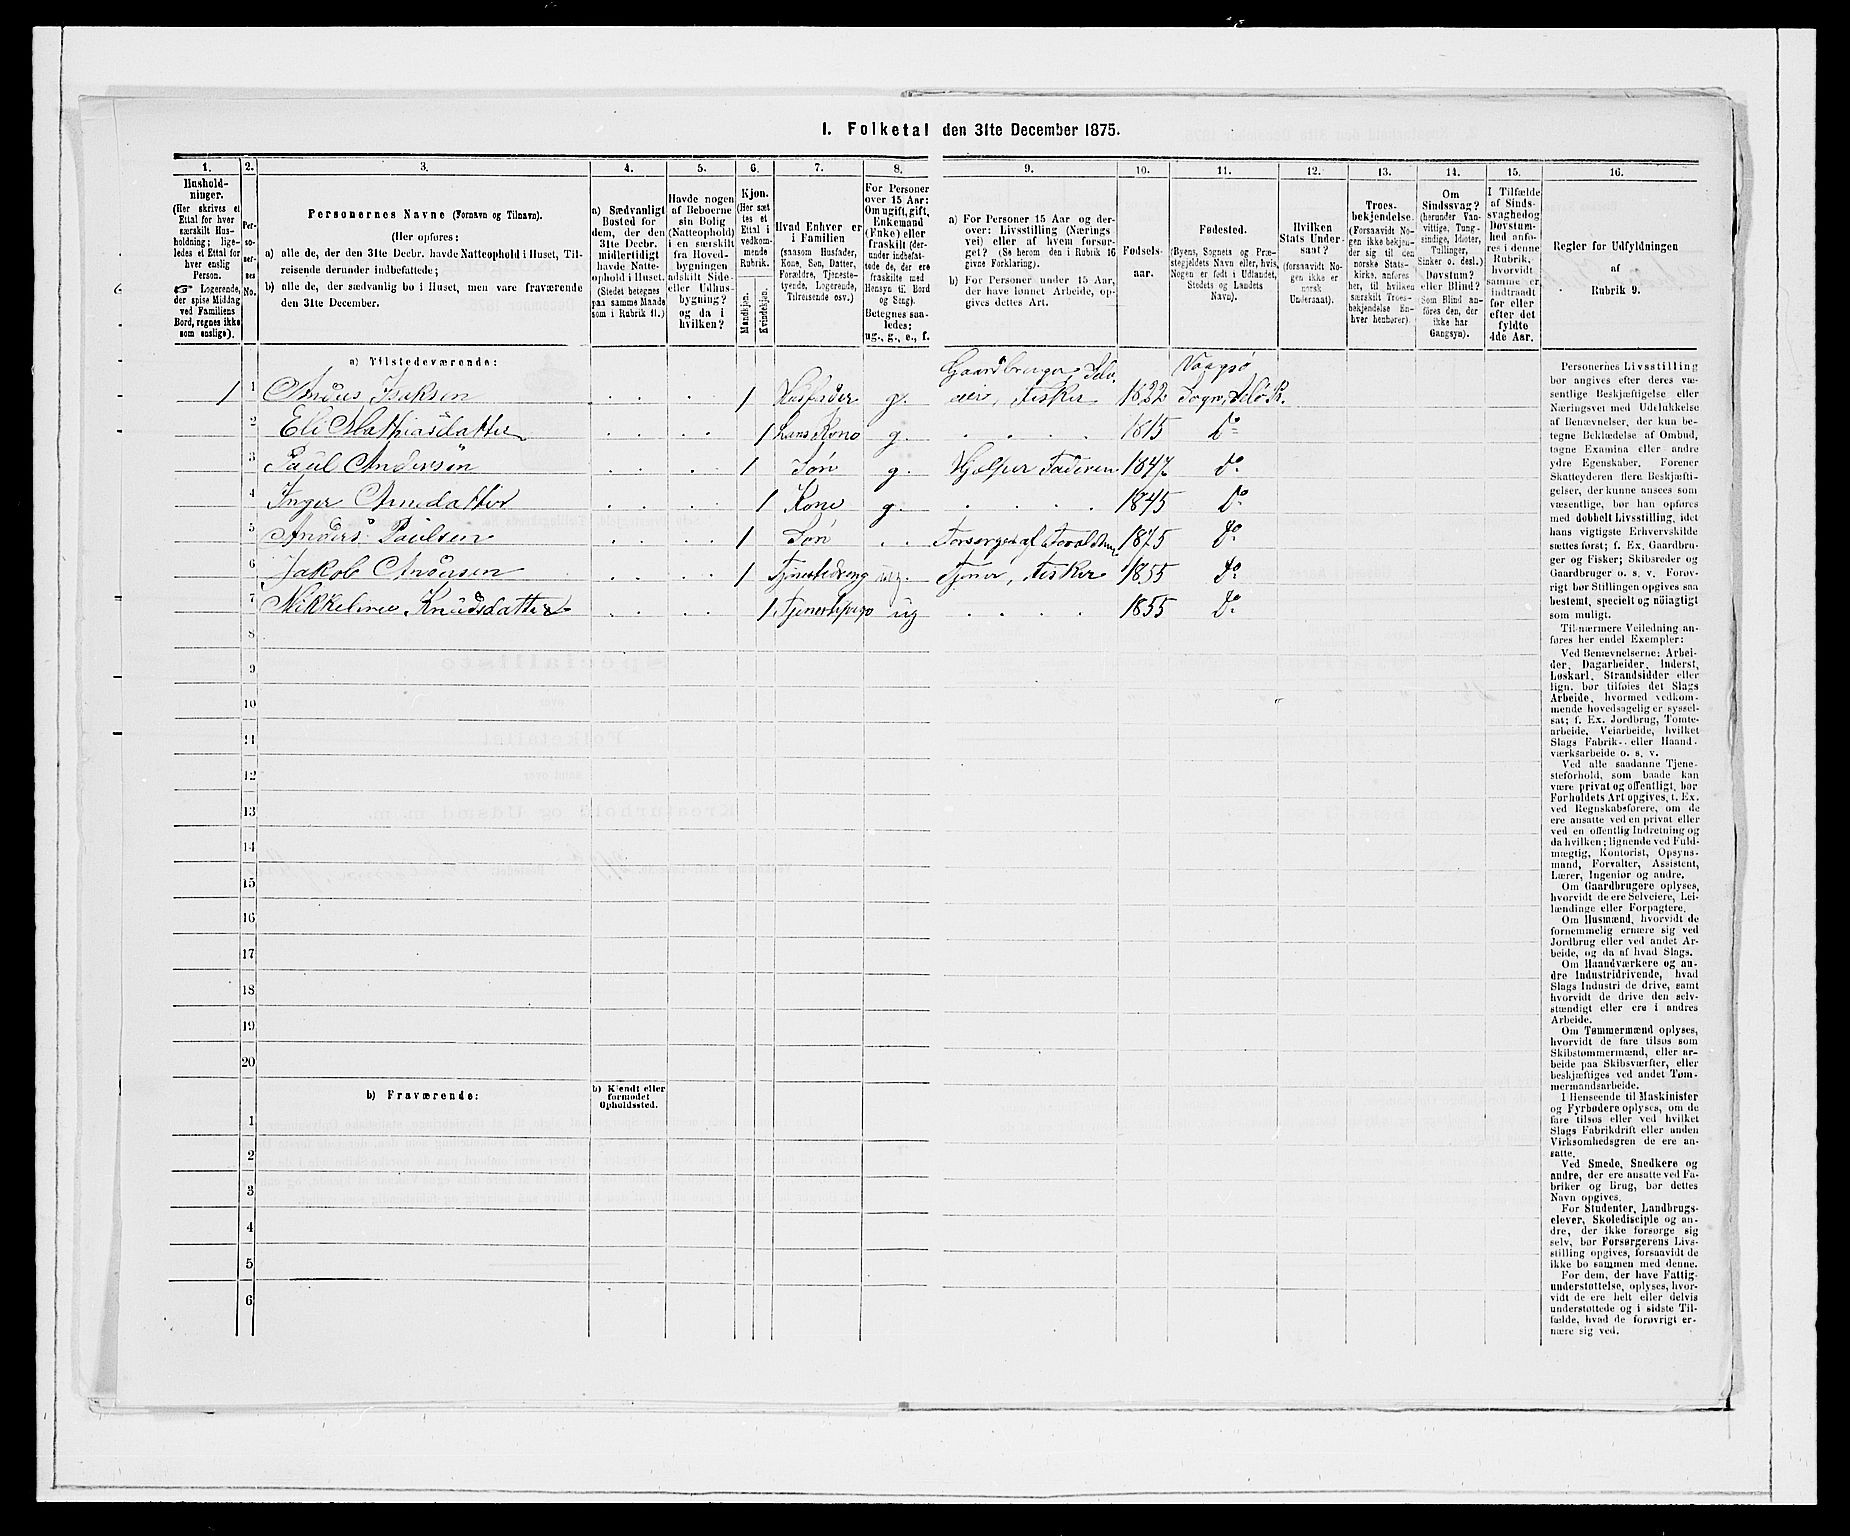 I. Folketal den 31te December 1875.
1. 2. 3. 4. 5. 6. 7. 8. 9. 10. 11. 12. 13. 14. 15. 16.
Hushold-
ninger.
(Her skrives et
Ettal for hver
særskilt Hus-
holdning; lige-
ledes et Ettal for
hver enslig
Person.
☞ Logerende,
der spise Middag
ved Familiens
Bord, regnes ikke
som enslige).
Per-
so-
ner-
nes
No.
Personernes Navne (Fornavn og Tilnavn).
(Her opføres:
a) alle de, der den 31te Decbr. havde Natteophold i Huset, Til-
reisende derunder indbefattede;
b) alle de, der sædvanlig bo i Huset, men vare fraværende
den 31te December.
a) Sædvanligt
Bosted for
dem, der den
31te Decbr.
midlertidigt
havde Natte-
ophold i Huset.
(Stedet betegnes
paa samme Maade
som i Rubrik 11.)
Havde nogen
af Beboerne
sin Bolig
(Natteophold)
i en særskilt
fra Hoved-
bygningen
adskilt Side-
eller Udhus-
bygning?
og da i
hvilken?
Kjøn.
(Her sæt-
tes et
Ettal i
vedkom-
mende
Rubrik.
Mandkjøn.
Kvindekjøn.
Hvad Enhver er
i Familien
(saasom Husfader,
Kone, Søn, Datter,
Forældre, Tjeneste-
tyende, Logerende,
Tilreisende osv.)
For Personer
over 15 Aar:
Om ugift, gift,
Enkemand
(Enke) eller
fraskilt (der-
under indbefat-
tede de, der ere
fraskilte med
Hensyn til Bord
og Seng).
Betegnes saa-
ledes:
ug., g., e., f.
a) For Personer 15 Aar og der-
over: Livsstilling (Nærings-
vei) eller af hvem forsør-
get? (Se herom den i Rubrik 16
givne Forklaring).
b) For Personer under 15 Aar,
der have lønnet Arbeide, op-
gives dettes Art.
Fødsels-
aar.
Fødested.
(Byens, Sognets og Præ-
stegjeldets Navn eller, hvis
Nogen er født i Udlandet,
Stedets og Landets
Navn).
Hvilken
Stats Under-
saat?
(forsaavidt No-
gen ikke er
norsk
Undersaat).
Troes-
bekjendelse.
(Forsaavidt No-
gen ikke bekjen-
der sig til den
norske Stats-
kirke, anføres
her, til hvilken
særskilt Troes-
bekjendelse En-
hver henhører).
Om
Sindssvag?
(herunder Van-
vittige, Tung-
sindige, Idioter,
Tullinger,
Sinker o. desl.)
Døvstum?
eller Blind?
Som Blind an-
føres den, der
ikke har
Gangsyn).
I Tilfælde
af Sinds-
svaghed og
Døvstum-
hed anfø-
res i denne
Rubrik,
hvorvidt
samme er
indtraadt
før eller
efter det
fyldte
4de Aar.
Regler for Udfyldningen
af
Rubrik 9.
a) Tilstedeværende:
Gaardbruger, Selv- Vaagsø
1 1 1 Husfader g. eier, Fisker 1822 Sogn, Selø P.
2 Eli Mathiasdatter 1 hans Kone g. 1815 Do
3 Paul Andersøn 1 Søn g. Hjælper Faderen 1847 Do
4 Inger Arnedatter 1 Kone g. 1845 Do
5 Anders Paulsen 1 Søn Forsørges af 1875 Do
6 Jakob 1 Tjenestedreng ug. Tjener, Fisker 1855 Do
7 Mikkeline Knudsdatter 1 Tjenestepige ug 1855 Do
8
9
10
11
12
13
14
15
16
17
18
19
20
b) Fraværende: b) Kjendt eller
formodet
Opholdssted.
1
2
3
4
5
6
Personernes Livsstilling
bør angives efter deres væ-
sentlige Beskjæftigelse eller
Næringsvei med Udelukkelse
af Benævnelser, der kun be-
tegne Beklædelse af Ombud,
tagne Examina eller andre
ydre Egenskaber. Forener
Skatteyderen flere Beskjæfti-
gelser, der kunne ansees som
væsentlige, bør han opføres
med dobbelt Livsstilling, idet
hans vigtigste Erhvervskilde
sættes først; f. Ex. Gaardbru-
ger og Fisker; Skibsreder og
Gaardbruger o. s. v. Forøv-
rigt bør Stillingen opgives saa
bestemt, specielt og nøiagtigt
som muligt.
Til nærmere Veiledning an-
føres her endel Exempler:
Ved Benævnelserne: Arbei-
der, Dagarbeider, Inderst,
Løskarl, Strandsidder eller
lign. bør tilføies det Slags
Arbeide, hvormed vedkom-
mende hovedsagelig er syssel-
sat; f. Ex. Jordbrug, Tomte-
arbeide, Veiarbeide, hvilket
Slags Fabrik- eller Haand-
værksarbeide o. s. v.
Ved alle saadanne Tjene-
steforhold, som baade kan
være privat og offentligt, bør
Forholdets Art opgives, f. Ex.
ved Regnskabsførere, om de
ere ansatte ved en privat eller
ved en offentlig Indretning og
da hvilken; lignende ved Fuld-
mægtig, Kontorist, Opsyns-
mand, Forvalter, Assistent,
Lærer, Ingeniør og andre.
Om Gaardbrugere oplyses,
hvorvidt de ere Selveiere, Lei-
lændinge eller Forpagtere.
Om Husmænd, hvorvidt de
fornemmelig ernære sig ved
Jordbrug eller ved andet Ar-
beide, og da af hvad Slags.
Om Haandværkere og an-
dre Industridrivende, hvad
Slags Industri de drive, samt
hvorvidt de drive den selv-
stændigt eller ere i andres
Arbeide.
Om Tømmermænd oplyses,
hvorvidt de fare tilsøs som
Skibstømmermænd, eller ar-
beide paa Skibsværfter, eller
beskjæftiges ved andet Tøm-
mermandsarbeide.
I Henseende til Maskinister
og Fyrbødere oplyses, om de
fare tilsøs eller ved hvilket
Slags Fabrikdrift eller anden
Virksomhedsgren de ere an-
satte.
Ved Smede, Snedkere og
andre, der ere ansatte ved Fa-
briker og Brug, bør dettes
Navn opgives.
For Studenter, Landbrugs-
elever, Skoledisciple og an-
dre, der ikke forsørge sig
selv, bør Forsørgerens Livs-
stilling opgives, forsaavidt de
ikke bo sammen med denne.
For dem, der have Fattig-
understøttelse, oplyses, hvor-
vidt de ere helt eller delvis
understøttede og i sidste Til-
fælde, hvad de forøvrigt er-
nære sig ved.